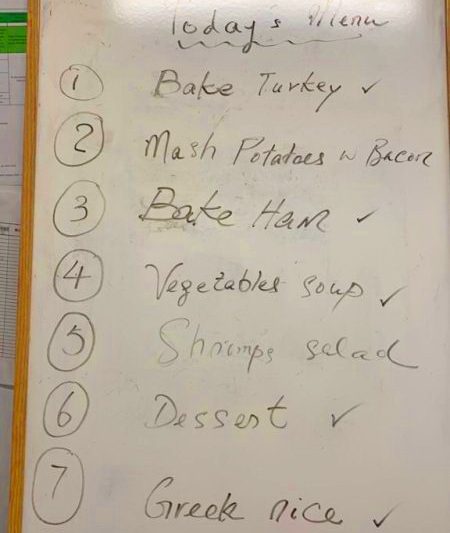 Today's Menu
1 Bake Turkey ✓
2 Mash Potatoes w Bacon
3 Bake Ham ✓
4 Vegetables soup ✓
5 Shrimps salad
6 Dessert ✓
7 Greek rice ✓